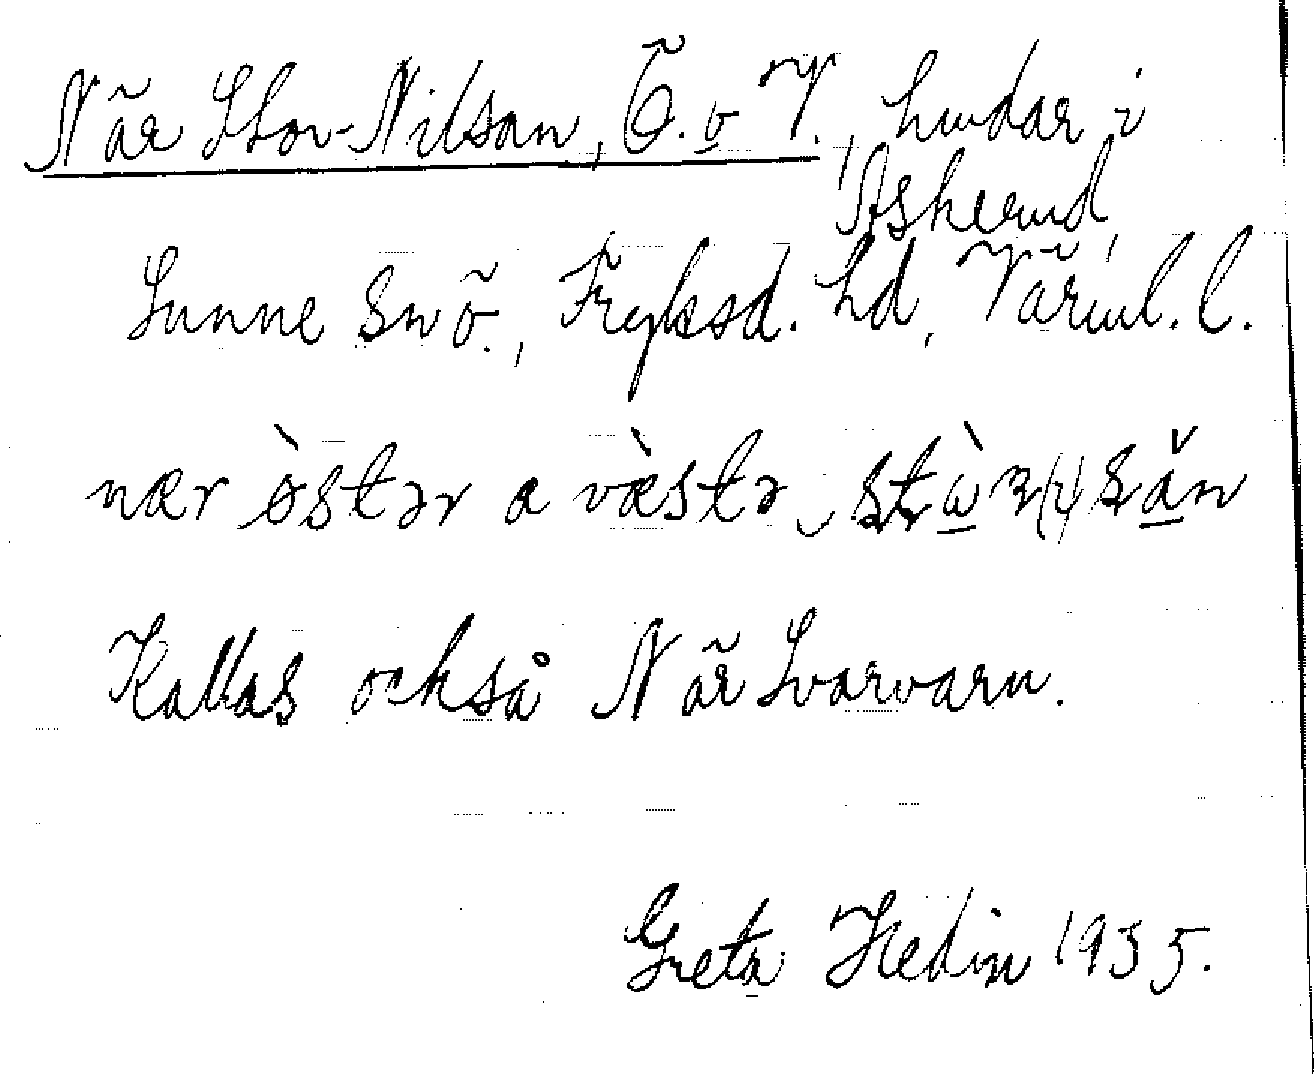 När Stor-Nilsan, Ö. o V., lindar i
Askerud,
Sunne snö., Fryksd. hd, Värml. l.
nær òstər a væ̀stə
Kallas också När Svarvarn.
Greta Hedin 1935.